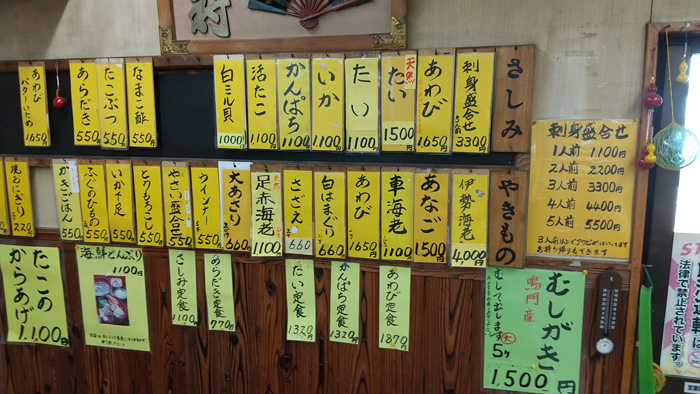 さしみ
刺身盛合せ
3人前
3300
あわび
1650
天然
たい
1500
たい
1100
いか
1100
かんぱち
1100
活たこ
1100
白ミル貝
1000円
なまこ酢
550
たこぶつ
550
あらだき
550
あわび
バターいため
1650
刺身盛合せ
1人前 1100円
2人前 2200円
3人前 3300円
4人前 4400円
5人前 5500円
3人前以上
お持り帰りもできます
やきもの
伊勢海老
4000円
あなご
1500
車海老
1100
あわび
1650
白はまぐり
660
さざえ
660
天然
足赤海老
1100
大あさり
660
ウインナー
550
やさい盛合
550
とうもろこし
550
いか千足
550
ふぐのひもの
550
かきごはん
550
焼おにぎり
220
むしがき
鳴門産
むして出します
大
5ケ
1,500円
あわび定食
1870円
かんぱち定食
1320円
たい定食
1320円
あらだき定食
770円
さしみ定食
1170円
海鮮どんぶり
1100円
たこの
からあげ
1,100円
法律で